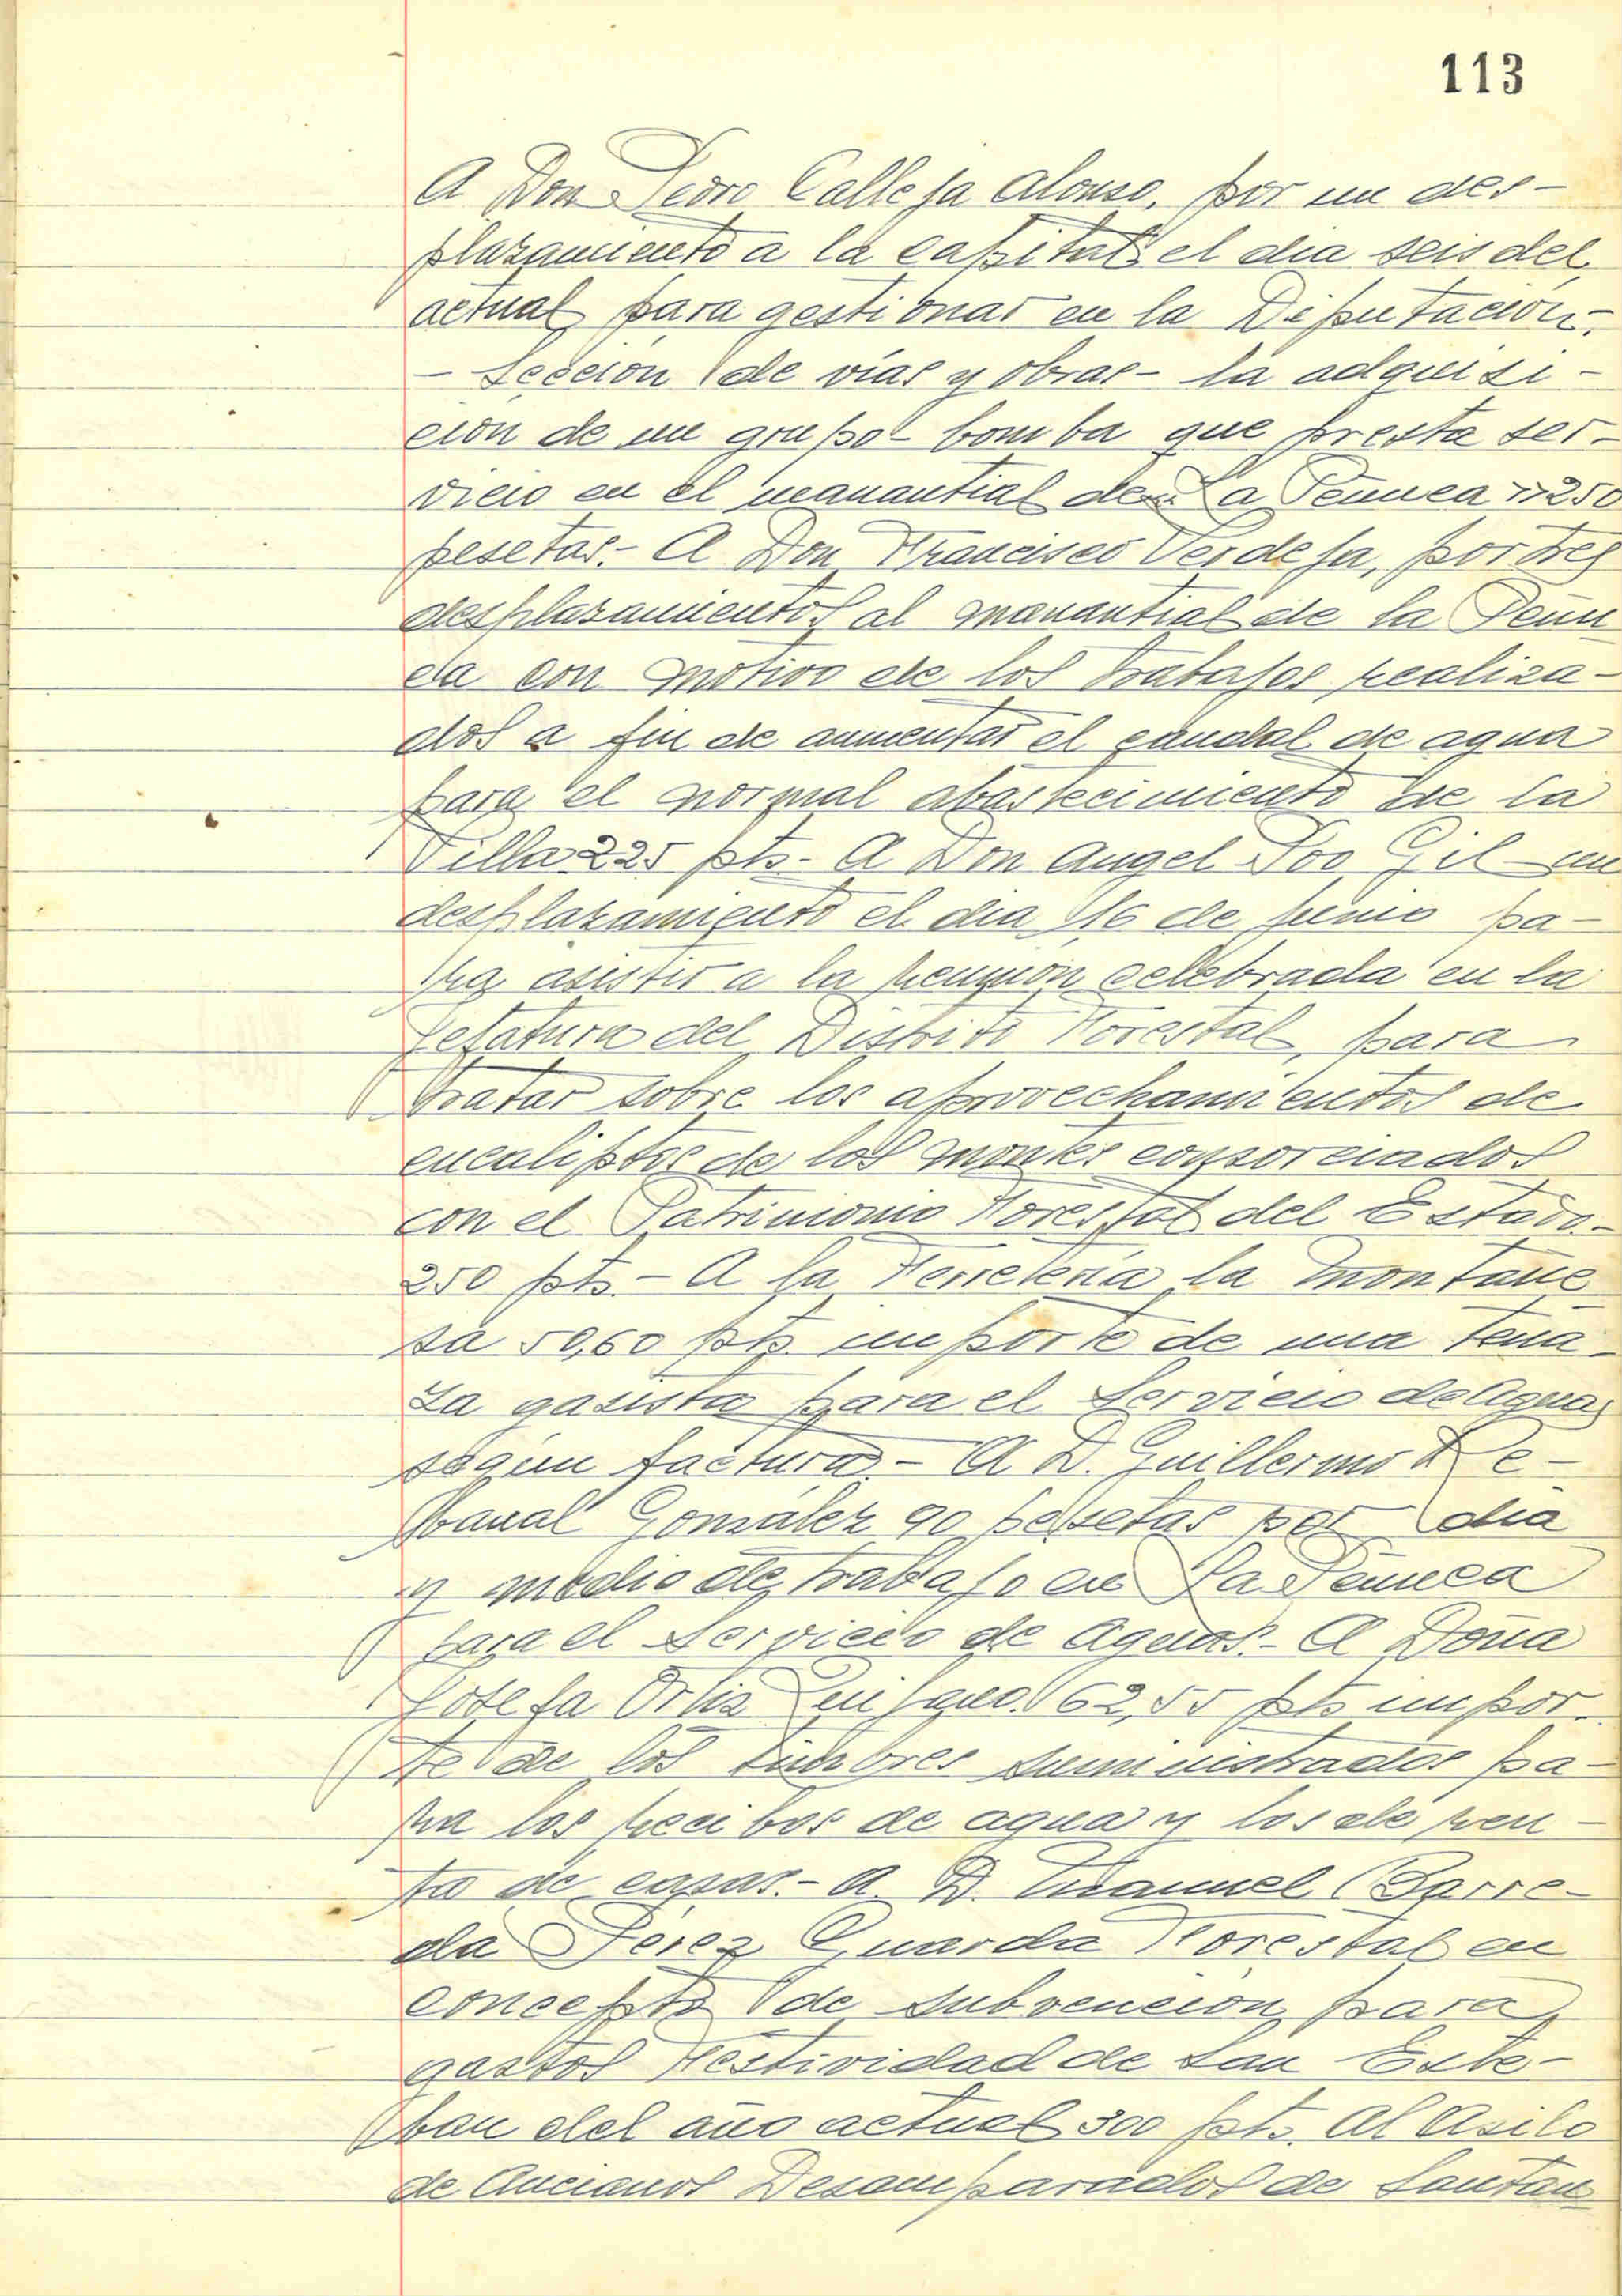 113
A Don Pedro Calleja Alonso, por un des-
plazamiento a la capital el dia seis del
actual, para gestionar en la Diputación-
- Sección de vías y obras- la adquisi-
cion de un grupo- bomba que presta ser-
vicio en el manantial de La Pennca 250
pesetas.- A Don Francisco Verdeja, por tres
desplazamientos al manantial de la Penn
ca con motivo de los trabajos realiza-
dos a fin de aumentar el caudal de agua
para el normal abastecimiento de la
Villa 225 pts.- A Don Angel Poo Gil un
desplazamiento el dia 16 de junio pa-
ra asistir a la reunion celebrada en la
Jefatura del Distrito Forestal, para
tratar sobre los aprovechamientos de
eucaliptos de los montes consorciados
con el Patrimonio Forestal del Estado.-
250 pts.- A la Ferreteria la Montañe
sa 50,60 pts. importe de una tena-
za gasista para el Servicio de Aguas
según factura.- A D. Guillermo Re-
banal González 90 pesetas por dia
y medio de trabajo en La Pennca
para el Servicio de Aguas.- A Doña
Josefa Ortiz Quijano. 62,55 pts impor-
te de los timbres suministrados pa-
ra los recibos de agua y los de ren-
ta de casas.- A. D. Manuel Barre-
da Pérez Guarda Forestal en
concepto de subvención para
gastos Festividad de San Este-
ban del año actual 300 pts. Al Asilo
de Ancianos Desamparados de Santan